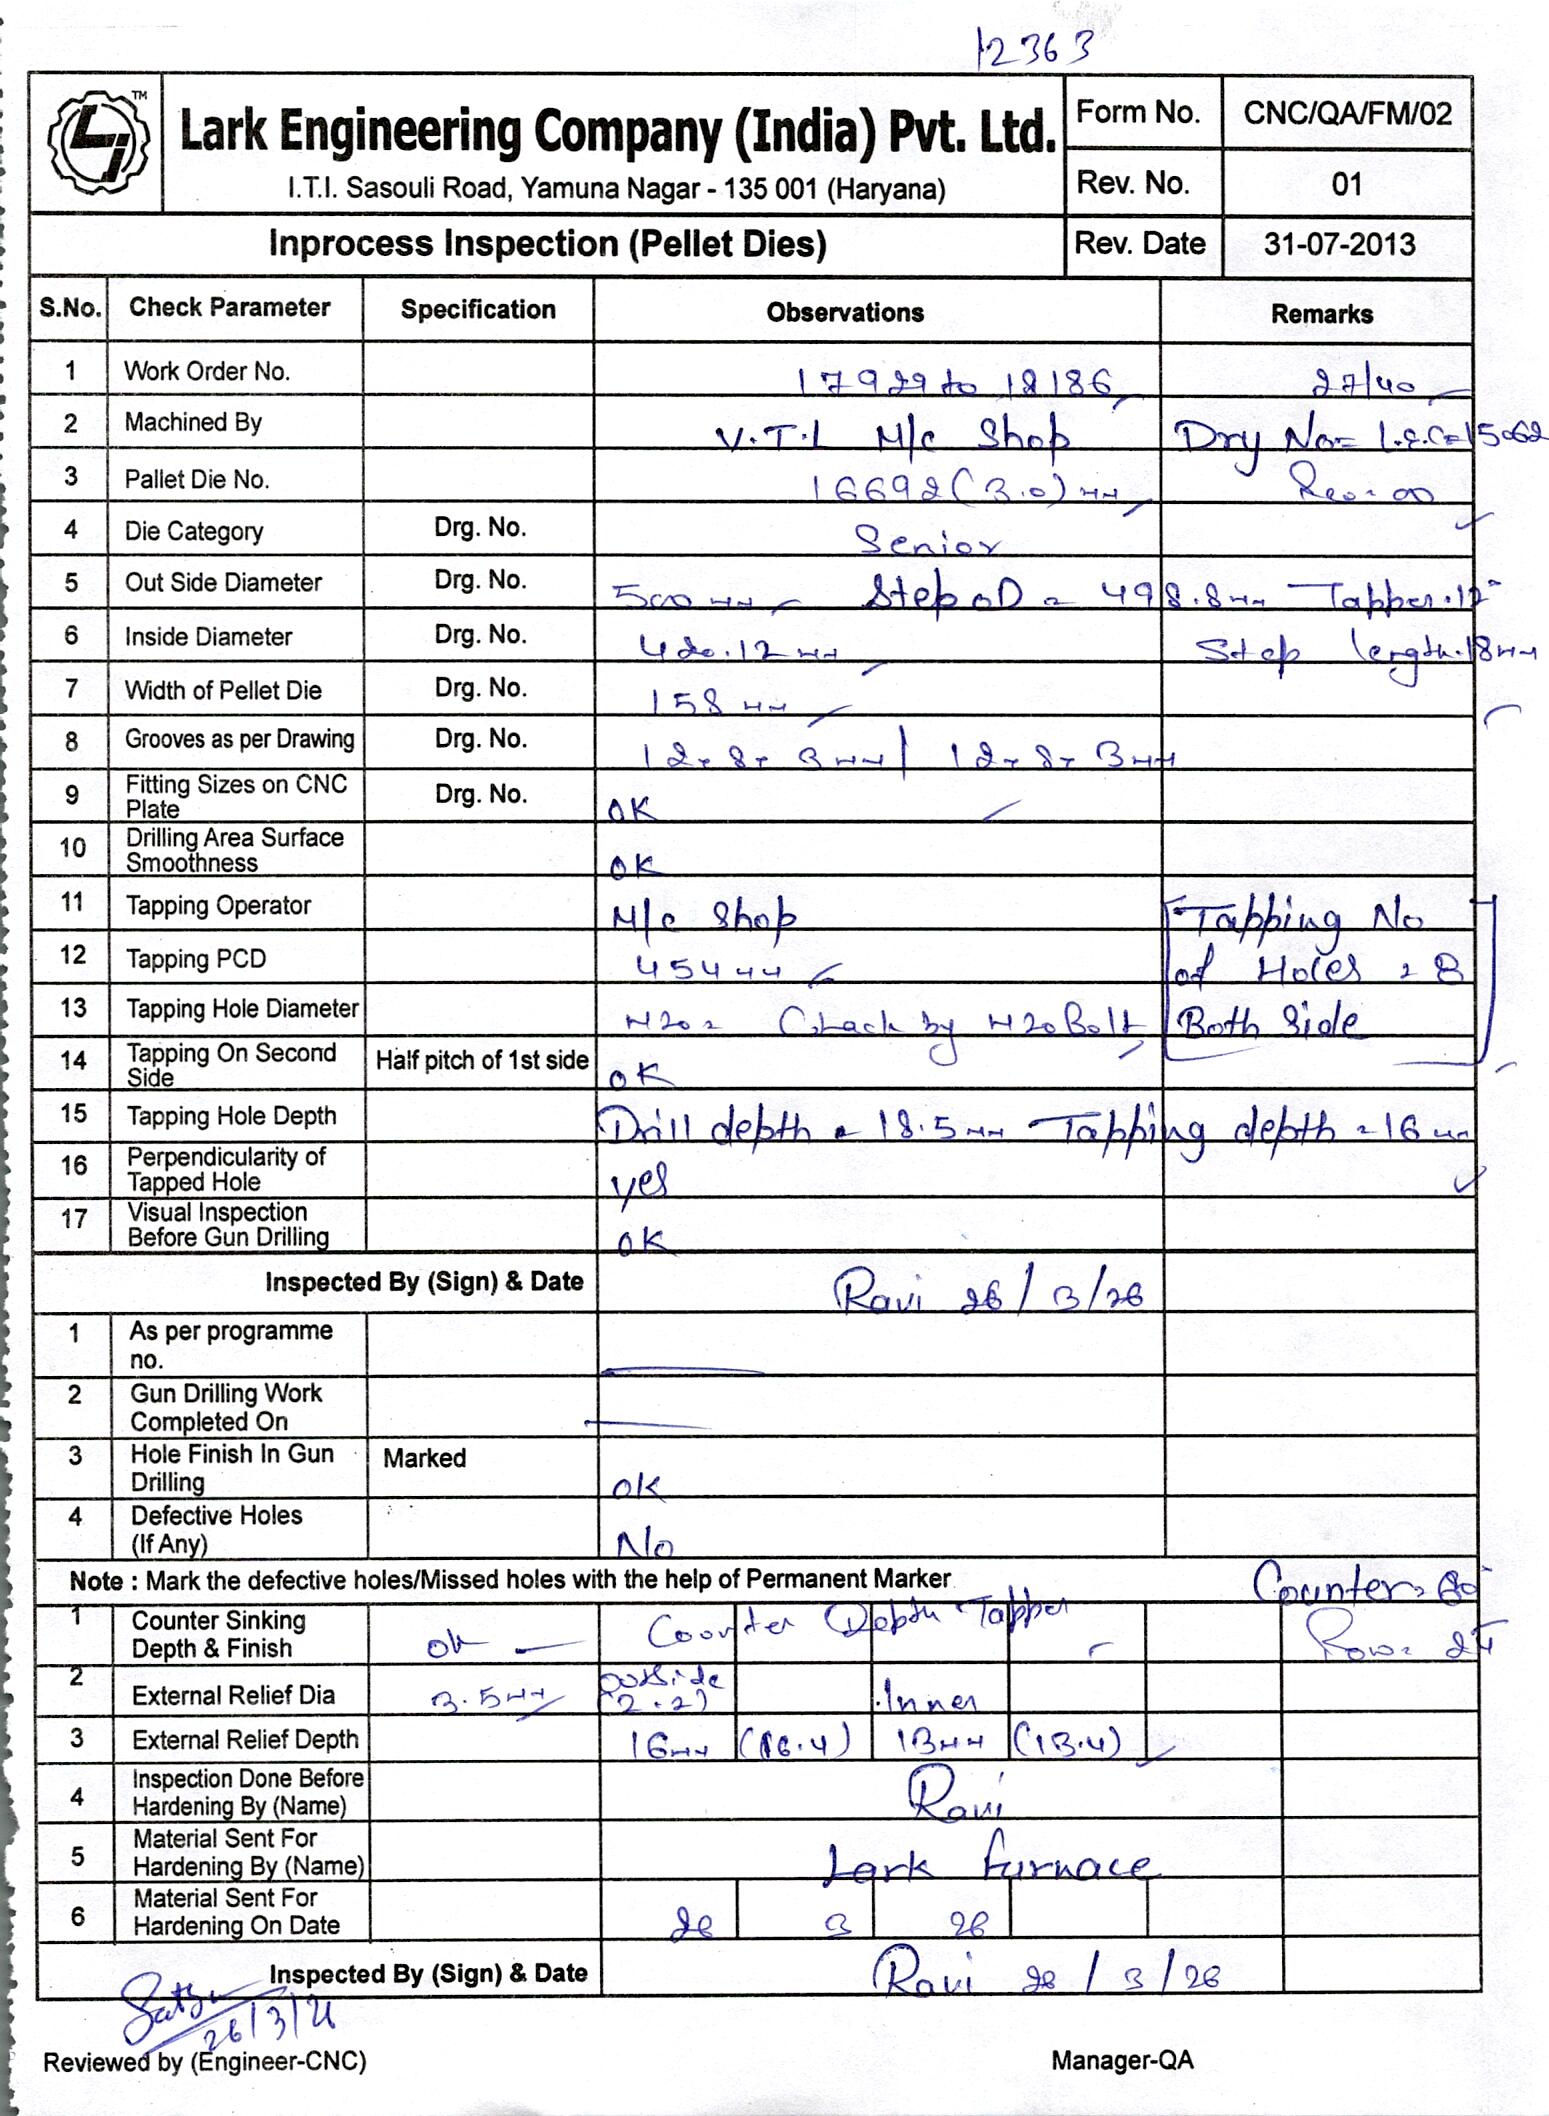 12363
TM
Lark Engineering Company (India) Pvt. Ltd.
I.T.I. Sasouli Road, Yamuna Nagar - 135 001 (Haryana)
Form No. CNC/QA/FM/02
Rev. No. 01
Inprocess Inspection (Pellet Dies) Rev. Date 31-07-2013
S.No. Check Parameter Specification Observations Remarks
1 Work Order No. 17929 to 18186 27/40
2 Machined By V.T.L M/c Shop Dry No= L.E.C=15062
3 Pallet Die No. 16692 (3.0) mm Rev= 00
4 Die Category Drg. No. Senior
5 Out Side Diameter Drg. No. 500 mm Step OD = 498.8mm Tapper.12°
6 Inside Diameter Drg. No. 420.12 mm Step length.18mm
7 Width of Pellet Die Drg. No. 158 mm
8 Grooves as per Drawing Drg. No. 12- 8- 3mm / 12- 8- 3mm
9 Fitting Sizes on CNC Plate Drg. No. OK
10 Drilling Area Surface Smoothness OK
11 Tapping Operator M/c Shop Tapping No
12 Tapping PCD 454mm of Holes = 8
13 Tapping Hole Diameter M20= Check by M20 Bolt Both Side
14 Tapping On Second Side Half pitch of 1st side OK
15 Tapping Hole Depth Drill depth = 18.5mm Tapping depth =16 mm
16 Perpendicularity of Tapped Hole yes
17 Visual Inspection Before Gun Drilling OK
Inspected By (Sign) & Date Ravi 26/3/26
1 As per programme no.
2 Gun Drilling Work Completed On
3 Hole Finish In Gun Drilling Marked OK
4 Defective Holes (If Any) No
Note : Mark the defective holes/Missed holes with the help of Permanent Marker Counter=
1 Counter Sinking Depth & Finish ok Counter Depth Tapper Row=
2 External Relief Dia 3.5mm outside (2.2) Inner
3 External Relief Depth 16mm (16.4) 13mm (13.4)
4 Inspection Done Before Hardening By (Name) Ravi
5 Material Sent For Hardening By (Name) Lark furnace
6 Material Sent For Hardening On Date 26 3 26
Inspected By (Sign) & Date Ravi 26/3/26
26/3/26
Reviewed by (Engineer-CNC) Manager-QA